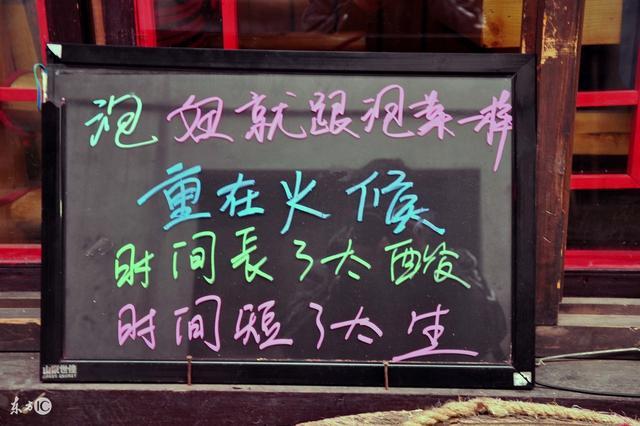 泡妞就跟泡菜一样
重在火候
时间長了太酸
时间短了太生
东方IC